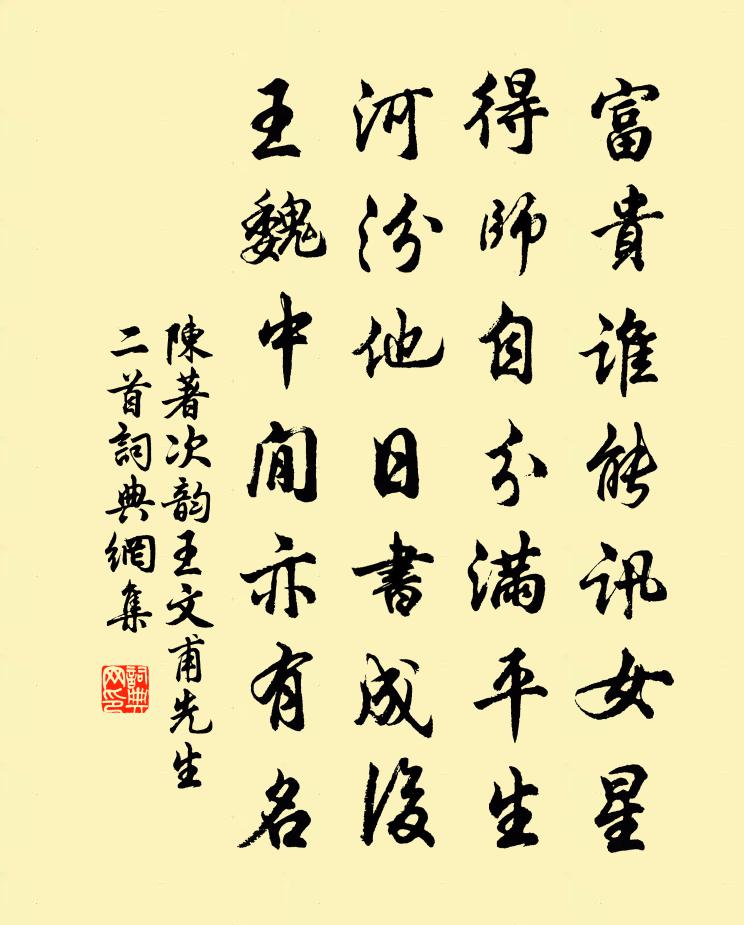 富貴誰能訊女星
得師自分滿平生
河汾他日書成後
王魏中間亦有名
陳著次韵王文甫先生
二首詞典網集
詞典网印